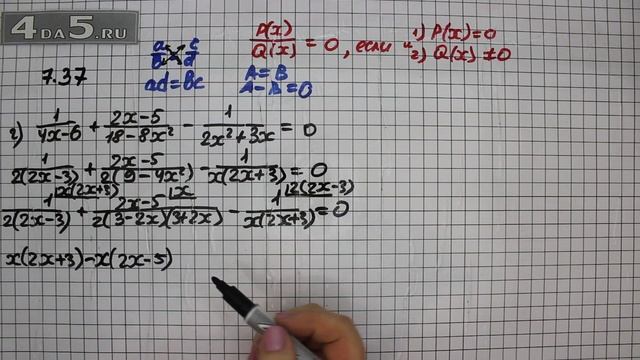 4DA5.RU
7.37
a/b = c/d
ad=bc
P(x)/Q(x) = 0, если 1) P(x)=0
и 2) Q(x)≠0
A=B
A-B=0
г) 1/(4x-6) + (2x-5)/(18-8x²) - 1/(2x²+3x) = 0
1/(2(2x-3)) + (2x-5)/(2(9-4x²)) - 1/(x(2x+3)) = 0
1/(2(2x-3)) |x(2x+3) + (2x-5)/(2(3-2x)(3+2x)) |x - 1/(x(2x+3)) |2(2x-3) = 0
x(2x+3)-x(2x-5)